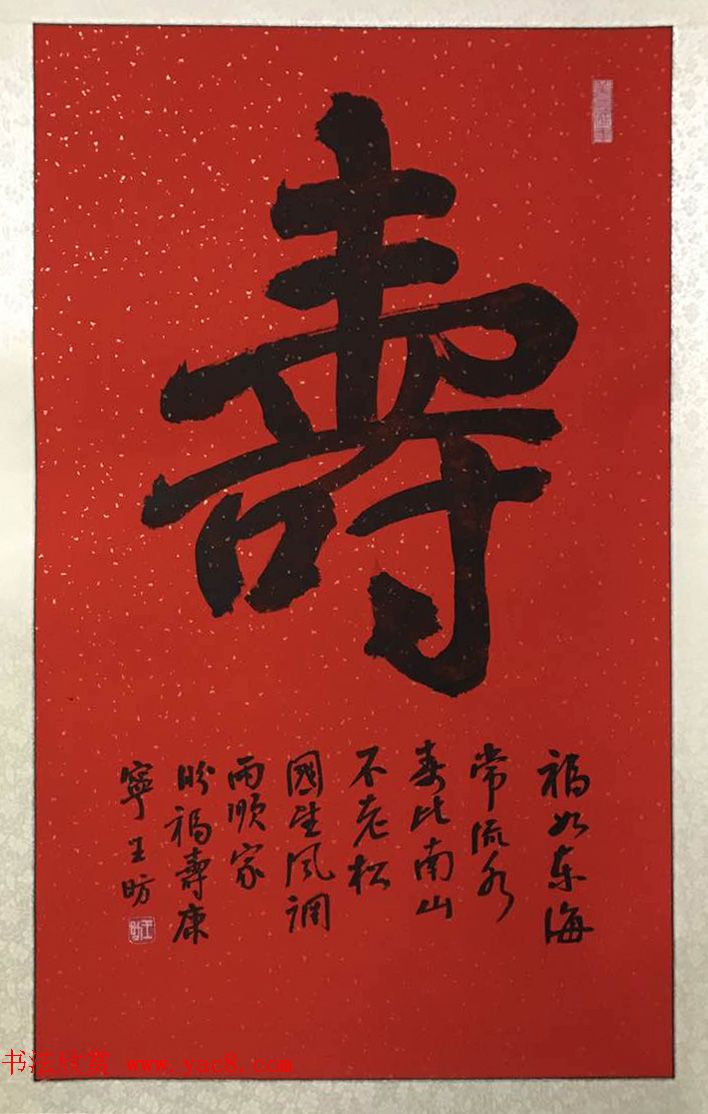 壽
福如东海
常流水
寿比南山
不老松
國生风调
雨顺家
盼福寿康
寧王昉
书法欣赏 www.yac8.com